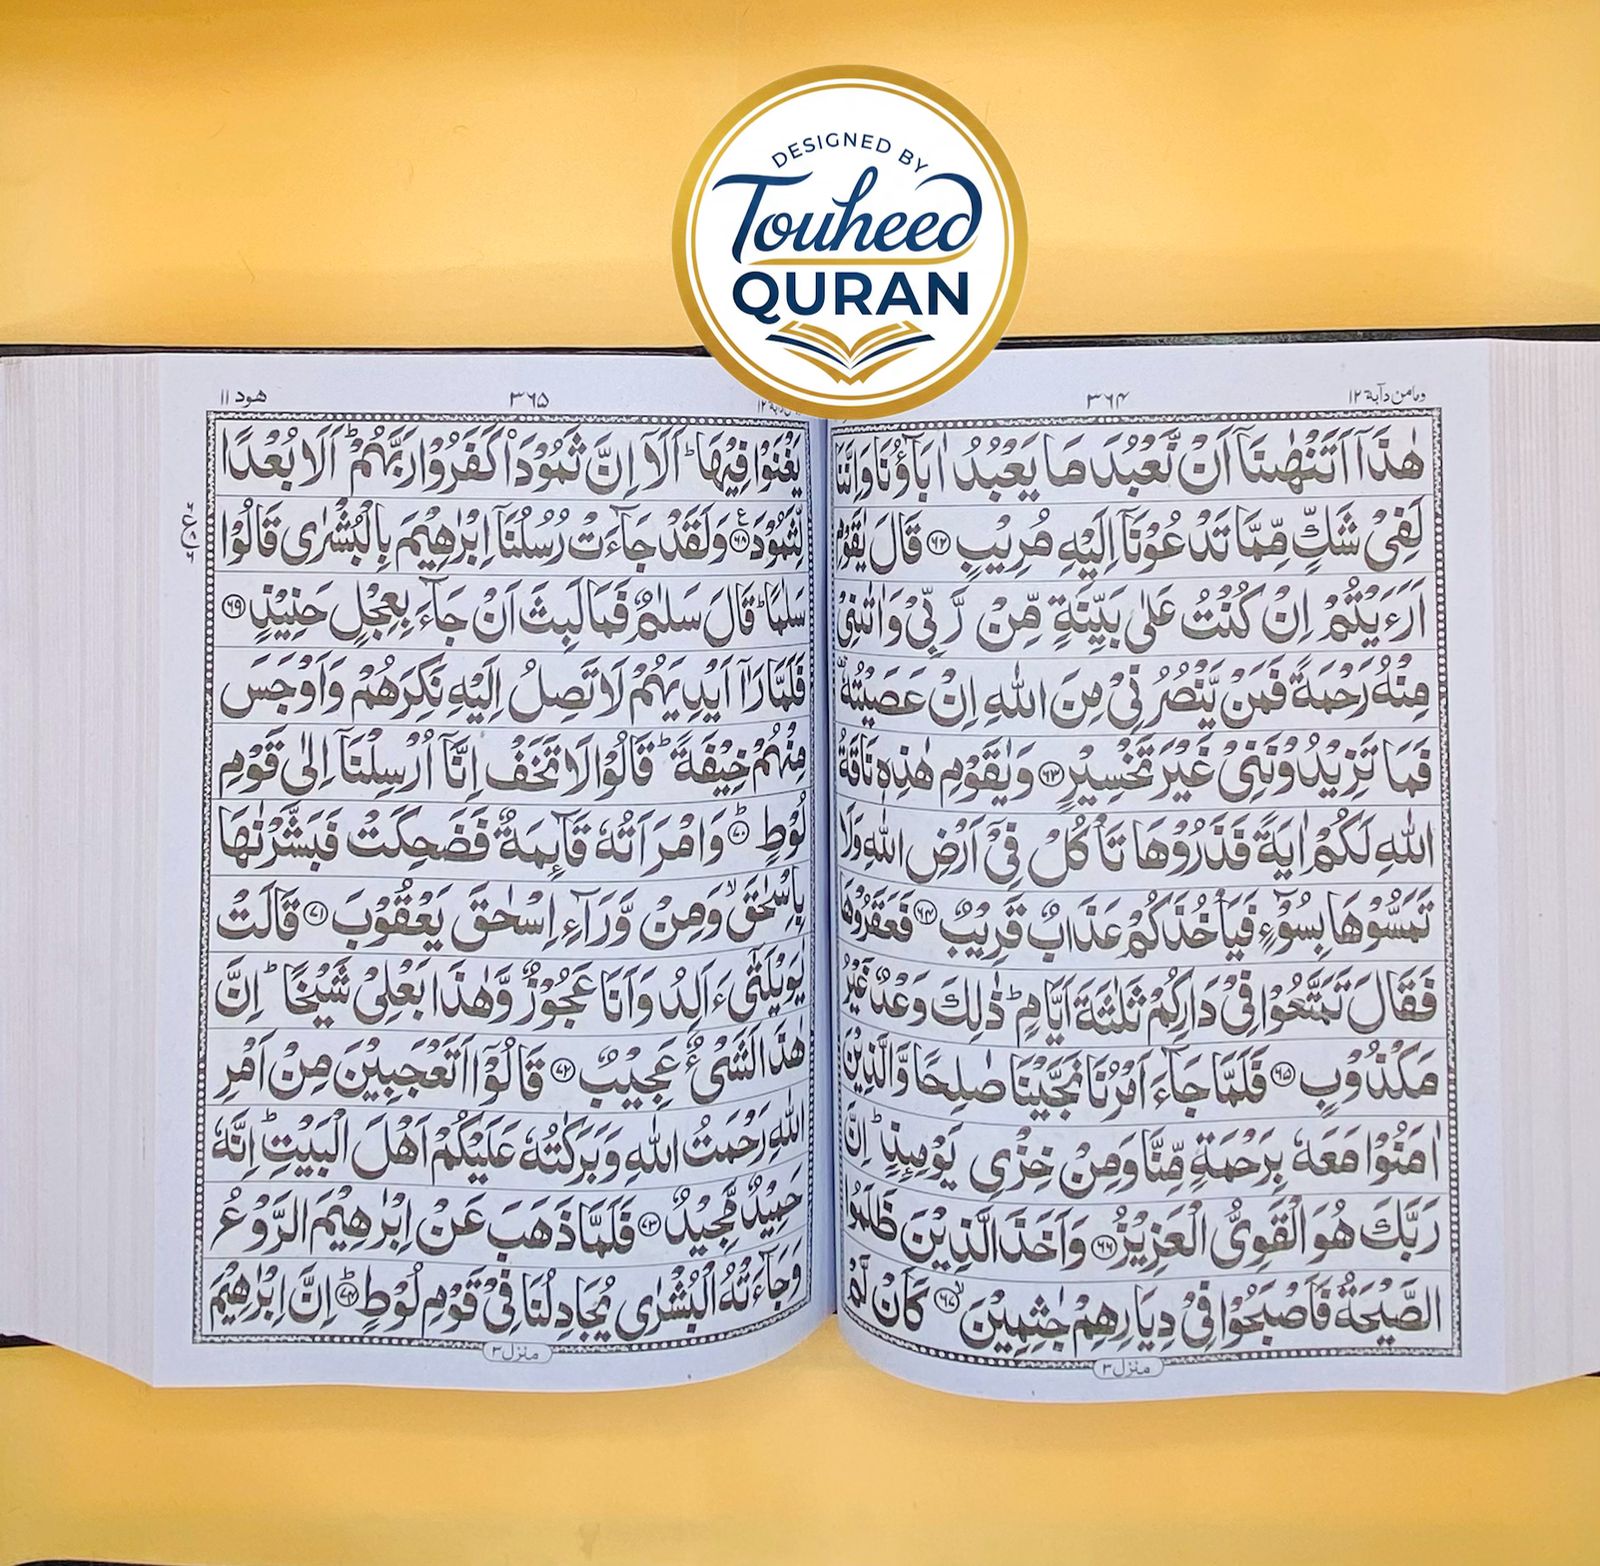 DESIGNED BY
Touheed
QURAN
ومامن دآبة ١٢
٣٦٤
هٰذَآ اَتَنْهٰىنَآ اَنْ نَّعْبُدَ مَا يَعْبُدُ اٰبَآؤُنَا وَاِنَّنَا
لَفِيْ شَكٍّ مِّمَّا تَدْعُوْنَآ اِلَيْهِ مُرِيْبٍ ﴿۶۲﴾ قَالَ يٰقَوْمِ
اَرَءَيْتُمْ اِنْ كُنْتُ عَلٰى بَيِّنَةٍ مِّنْ رَّبِّيْ وَاٰتٰىنِيْ
مِنْهُ رَحْمَةً فَمَنْ يَّنْصُرُنِيْ مِنَ اللّٰهِ اِنْ عَصَيْتُهٗ
فَمَا تَزِيْدُوْنَنِيْ غَيْرَ تَخْسِيْرٍ ﴿۶۳﴾ وَيٰقَوْمِ هٰذِهٖ نَاقَةُ
اللّٰهِ لَكُمْ اٰيَةً فَذَرُوْهَا تَاْكُلْ فِيْٓ اَرْضِ اللّٰهِ وَلَا
تَمَسُّوْهَا بِسُوْٓءٍ فَيَاْخُذَكُمْ عَذَابٌ قَرِيْبٌ ﴿۶۴﴾ فَعَقَرُوْهَا
فَقَالَ تَمَتَّعُوْا فِيْ دَارِكُمْ ثَلٰثَةَ اَيَّامٍ ؕ ذٰلِكَ وَعْدٌ غَيْرُ
مَكْذُوْبٍ ﴿۶۵﴾ فَلَمَّا جَآءَ اَمْرُنَا نَجَّيْنَا صٰلِحًا وَّالَّذِيْنَ
اٰمَنُوْا مَعَهٗ بِرَحْمَةٍ مِّنَّا وَمِنْ خِزْيِ يَوْمِئِذٍ ؕ اِنَّ
رَبَّكَ هُوَ الْقَوِيُّ الْعَزِيْزُ ﴿۶۶﴾ وَاَخَذَ الَّذِيْنَ ظَلَمُوا
الصَّيْحَةُ فَاَصْبَحُوْا فِيْ دِيَارِهِمْ جٰثِمِيْنَ ﴿۶۷﴾ كَاَنْ لَّمْ
منزل ٣
٣٦٥
هود ١١
يَغْنَوْا فِيْهَا ؕ اَلَآ اِنَّ ثَمُوْدَا۟ كَفَرُوْا رَبَّهُمْ ؕ اَلَا بُعْدًا
لِّثَمُوْدَ ﴿۶۸﴾ وَلَقَدْ جَآءَتْ رُسُلُنَآ اِبْرٰهِيْمَ بِالْبُشْرٰى قَالُوْا
سَلٰمًا ؕ قَالَ سَلٰمٌ فَمَا لَبِثَ اَنْ جَآءَ بِعِجْلٍ حَنِيْذٍ ﴿۶۹﴾
فَلَمَّا رَآٰ اَيْدِيَهُمْ لَا تَصِلُ اِلَيْهِ نَكِرَهُمْ وَاَوْجَسَ
مِنْهُمْ خِيْفَةً ؕ قَالُوْا لَا تَخَفْ اِنَّآ اُرْسِلْنَآ اِلٰى قَوْمِ
لُوْطٍ ؕ ﴿۷۰﴾ وَامْرَاَتُهٗ قَآئِمَةٌ فَضَحِكَتْ فَبَشَّرْنٰهَا
بِاِسْحٰقَ ۙ وَمِنْ وَّرَآءِ اِسْحٰقَ يَعْقُوْبَ ﴿۷۱﴾ قَالَتْ
يٰوَيْلَتٰٓى ءَاَلِدُ وَاَنَا عَجُوْزٌ وَّهٰذَا بَعْلِيْ شَيْخًا ؕ اِنَّ
هٰذَا لَشَيْءٌ عَجِيْبٌ ﴿۷۲﴾ قَالُوْٓا اَتَعْجَبِيْنَ مِنْ اَمْرِ
اللّٰهِ رَحْمَتُ اللّٰهِ وَبَرَكٰتُهٗ عَلَيْكُمْ اَهْلَ الْبَيْتِ ؕ اِنَّهٗ
حَمِيْدٌ مَّجِيْدٌ ﴿۷۳﴾ فَلَمَّا ذَهَبَ عَنْ اِبْرٰهِيْمَ الرَّوْعُ
وَجَآءَتْهُ الْبُشْرٰى يُجَادِلُنَا فِيْ قَوْمِ لُوْطٍ ؕ ﴿۷۴﴾ اِنَّ اِبْرٰهِيْمَ
منزل ٣